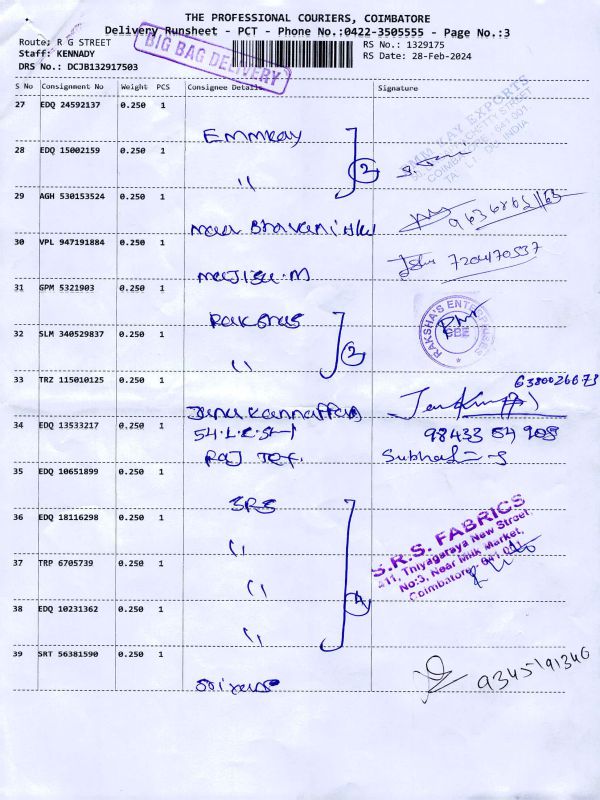 THE PROFESSIONAL COURIERS, COIMBATORE
Delivery Runsheet - PCT - Phone No.:0422-3505555 - Page No.:3
Route: R G STREET
RS No.: 1329175
Staff: KENNADY
RS Date: 28-Feb-2024
DRS No.: DCJB132917503
BIG BAG DELIVERY
S No Consignment No Weight PCS Consignee Details Signature
27 EDQ 24592137 0.250 1
Emmkay
28 EDQ 15002159 0.250 1
" 2
29 AGH 530153524 0.250 1
30 VPL 947191884 0.250 1
7204170537
majisa.m
31 GPM 5321903 0.250 1
Rakshas
RAKSHA'S ENTERPRISES
CBE
32 SLM 340529837 0.250 1
" 2
33 TRZ 115010125 0.250 1
6380026673
34 EDQ 13533217 0.250 1
98433 64 908
Raj Tex.
35 EDQ 10651899 0.250 1
SRS
S.R.S. FABRICS
411, Thiyagaraya New Street,
No:3, Near Milk Market,
Coimbatore - 641 001.
36 EDQ 18116298 0.250 1
"
37 TRP 6705739 0.250 1
" 4
38 EDQ 10231362 0.250 1
"
39 SRT 56381590 0.250 1
9345191346